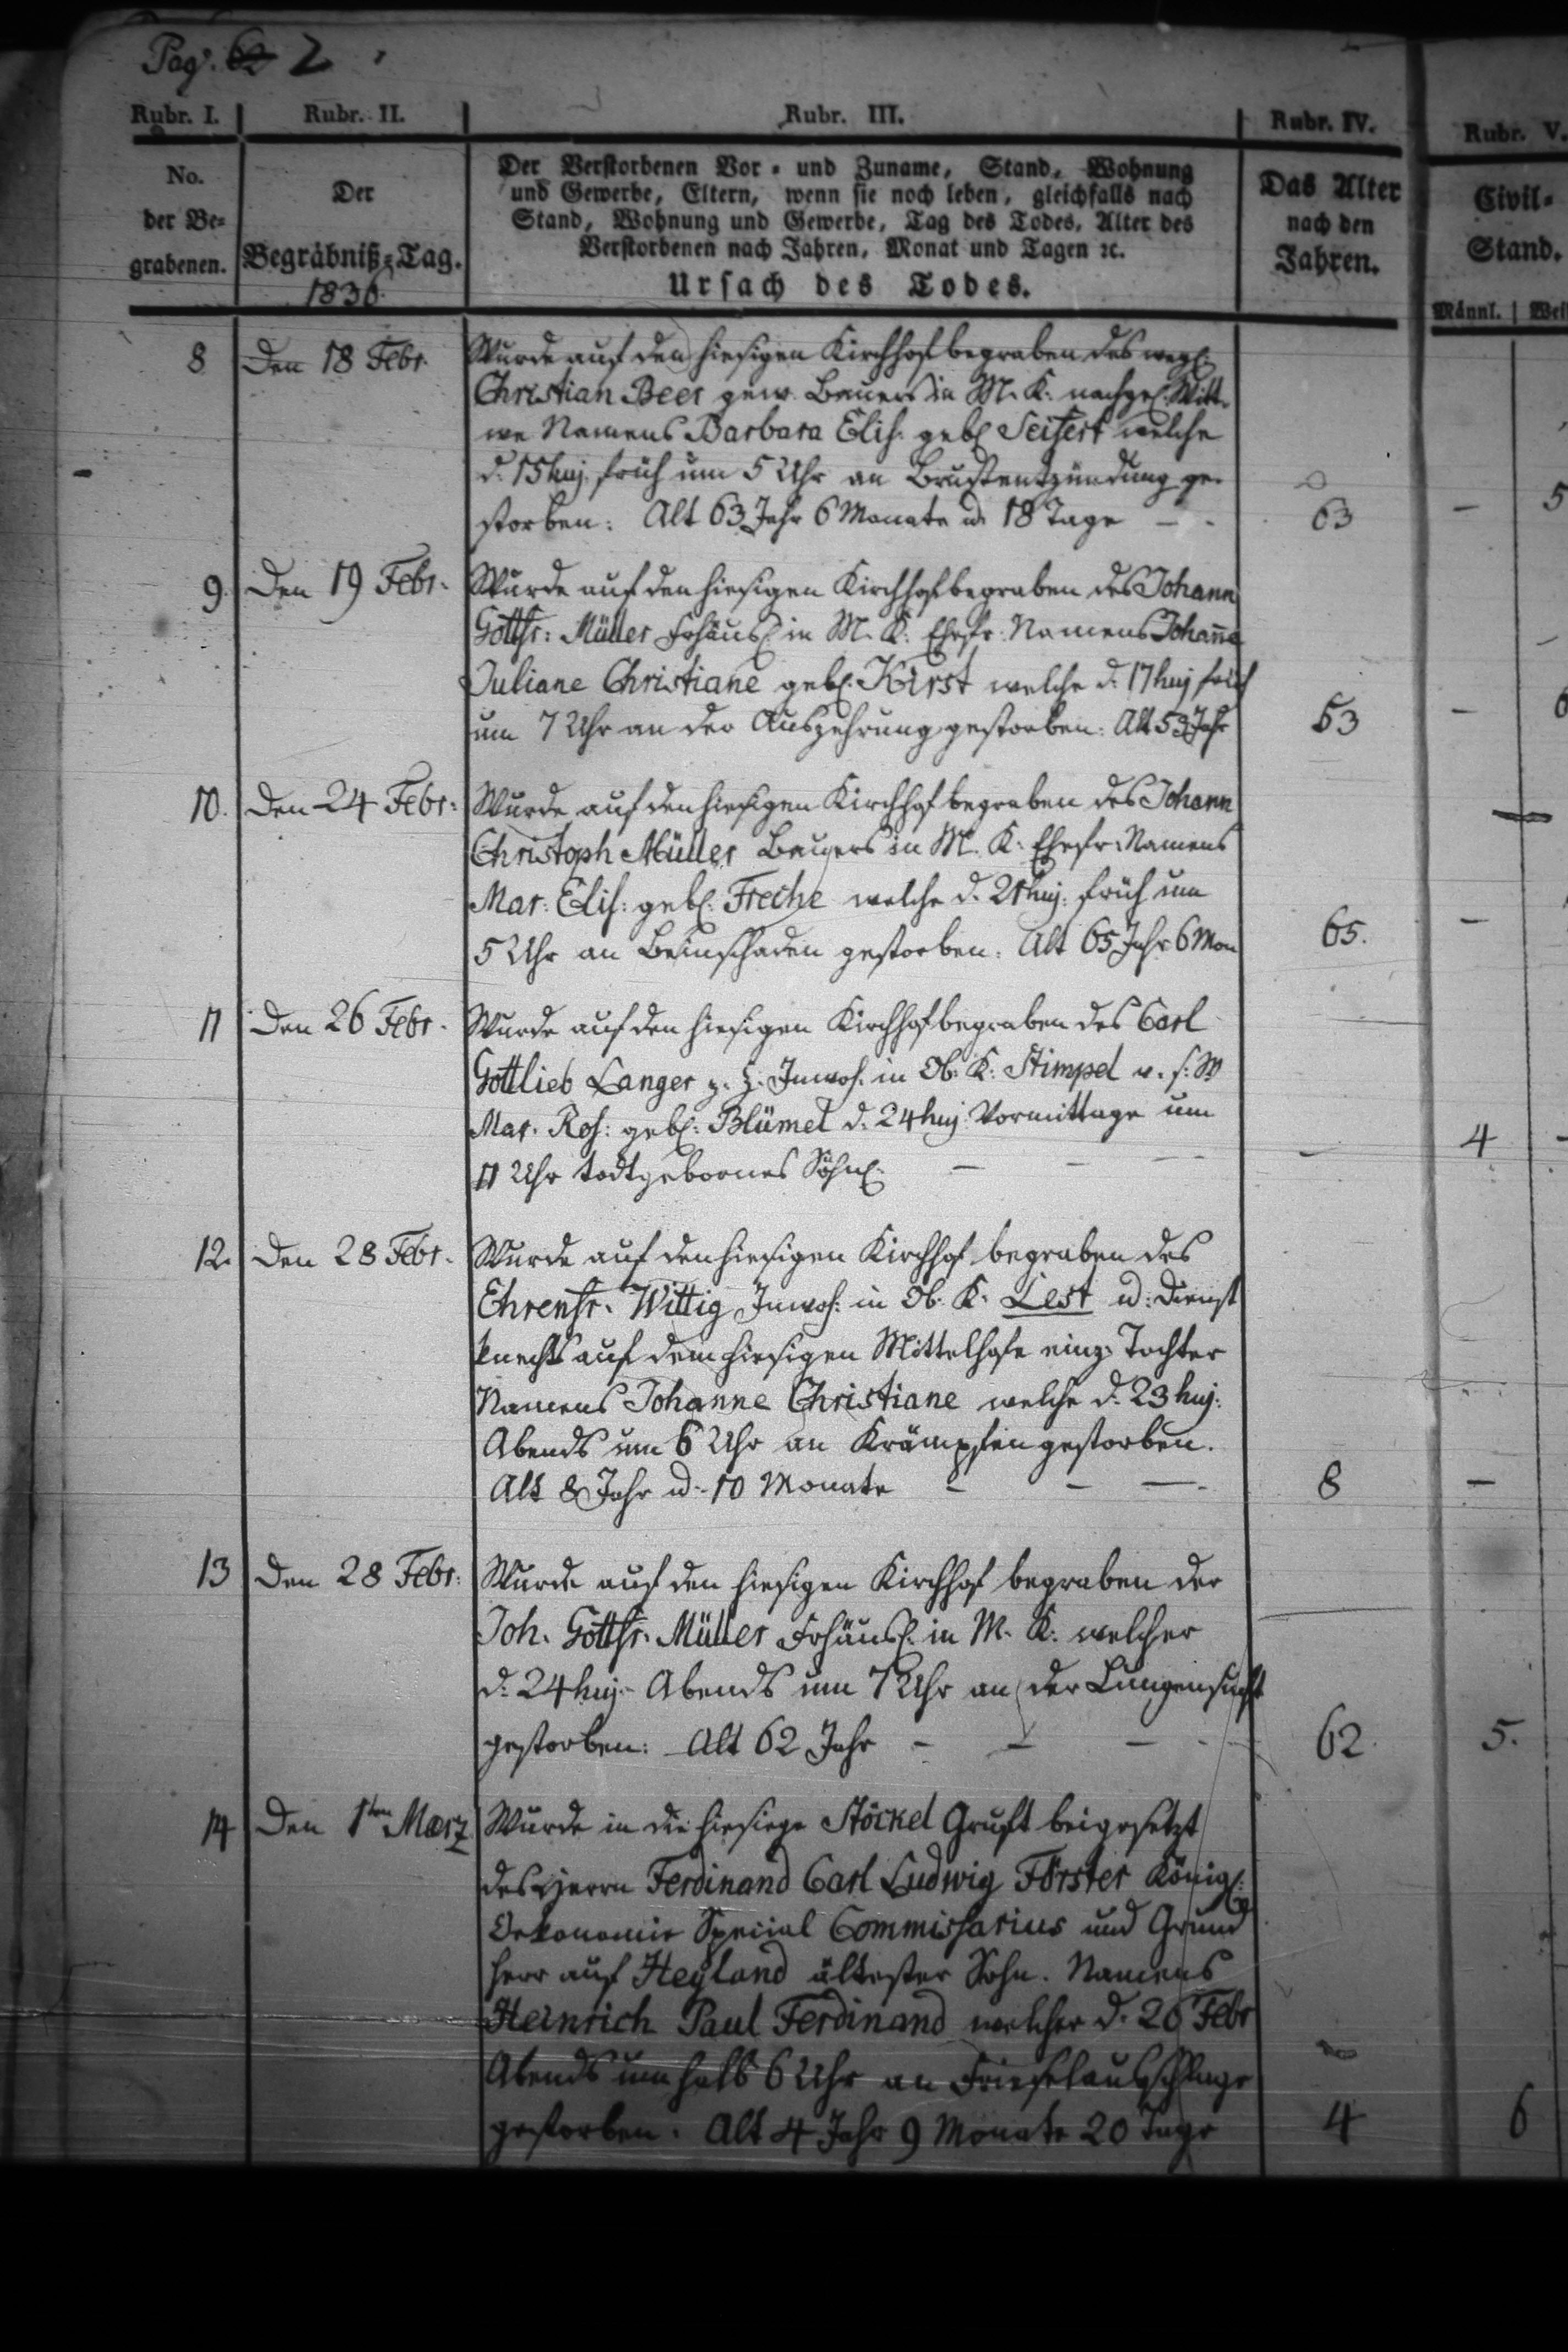 Pag. 62 2
Rubr. I. Rubr. II. Rubr. III. Rubr. IV. Rubr. V.
No. der Be-grabenen.
Der Begräbniß-Tag.
1830.
Der Verstorbenen Vor- und Zuname, Stand, Wohnung
und Gewerbe, Eltern, wenn sie noch leben, gleichfalls nach
Stand, Wohnung und Gewerbe, Tag des Todes, Alter des
Verstorbenen nach Jahren, Monat und Tagen ꝛc.
Ursach des Todes.
Das Alter
nach den
Jahren.
Civil-
Stand.
Männl. | Wei
8 Den 18 Febr. Wurde auf den hiesigen Kirchhof begraben des weyl.
Christian Beer gew. Bauers in M. K. nachgel. Witt-
we Namens Barbara Elis. geb. Seifert welche
d. 15 huj. früh um 5 Uhr an Brustentzündung ge-
storben. Alt 63 Jahr 6 Monate u. 18 Tage – - 63 – 5
9. Den 19 Febr. Wurde auf den hiesigen Kirchhof begraben des Johann
Gottfr: Müller Frhäusl. in M. K. Ehefr. Namens Johañe
Juliane Christiane geb. Kirst welche d. 17 huj früh
um 7 Uhr an der Auszehrung gestorben. Alt 53 Jahr 53 – 6
10. Den 24 Febr: Wurde auf den hiesigen Kirchhof begraben des Johann
Christoph Müller Bauers in M. K. Ehefr. Namens
Mar. Elis: geb. Freche welche d. 21 huj. früh um
5 Uhr an Beinschaden gestorben. Alt 65 Jahr 6 Mon 65. –
11 Den 26 Febr. Wurde auf den hiesigen Kirchhof begraben des Carl
Gottlieb Langer z. Z. Inwoh. in Ob. K. Stimpel v. s. W
Mar. Ros: geb. Blümel d. 24 huj. Vormittage um
11 Uhr todtgebornes Söhnl. – – – – 4 -
12. Den 28 Febr. Wurde auf den hiesigen Kirchhof begraben des
Ehrenfr. Wittig Inwoh: in Ob. K. Lest u. Dienst
knechts auf dem hiesigen Mittelhofe einz. Tochter
Namens Johanne Christiane welche d. 23 huj.
Abends um 6 Uhr an Krämpfen gestorben.
Alt 8 Jahr u. 10 Monate – – – 8 –
13 Den 28 Febr: Wurde auf den hiesigen Kirchhof begraben der
Joh. Gottfr. Müller Frhäusl. in M. K. welcher
d. 24 huj. Abends um 7 Uhr an der Lungensucht
gestorben. Alt 62 Jahr – – – 62. 5.
14 Den 1ten Mærz Wurde in die hiesige Stöckel Gruft beigesetzt
des Herrn Ferdinand Carl Ludwig Förster Königl.
Oekonomie Special Commissarius und Grund
herr auf Heyland ältester Sohn. Namens
Heinrich Paul Ferdinand welcher d. 26 Febr
Abends um halb 6 Uhr an Frieselausschlage
gestorben. Alt 4 Jahr 9 Monate 20 Tage 4 6